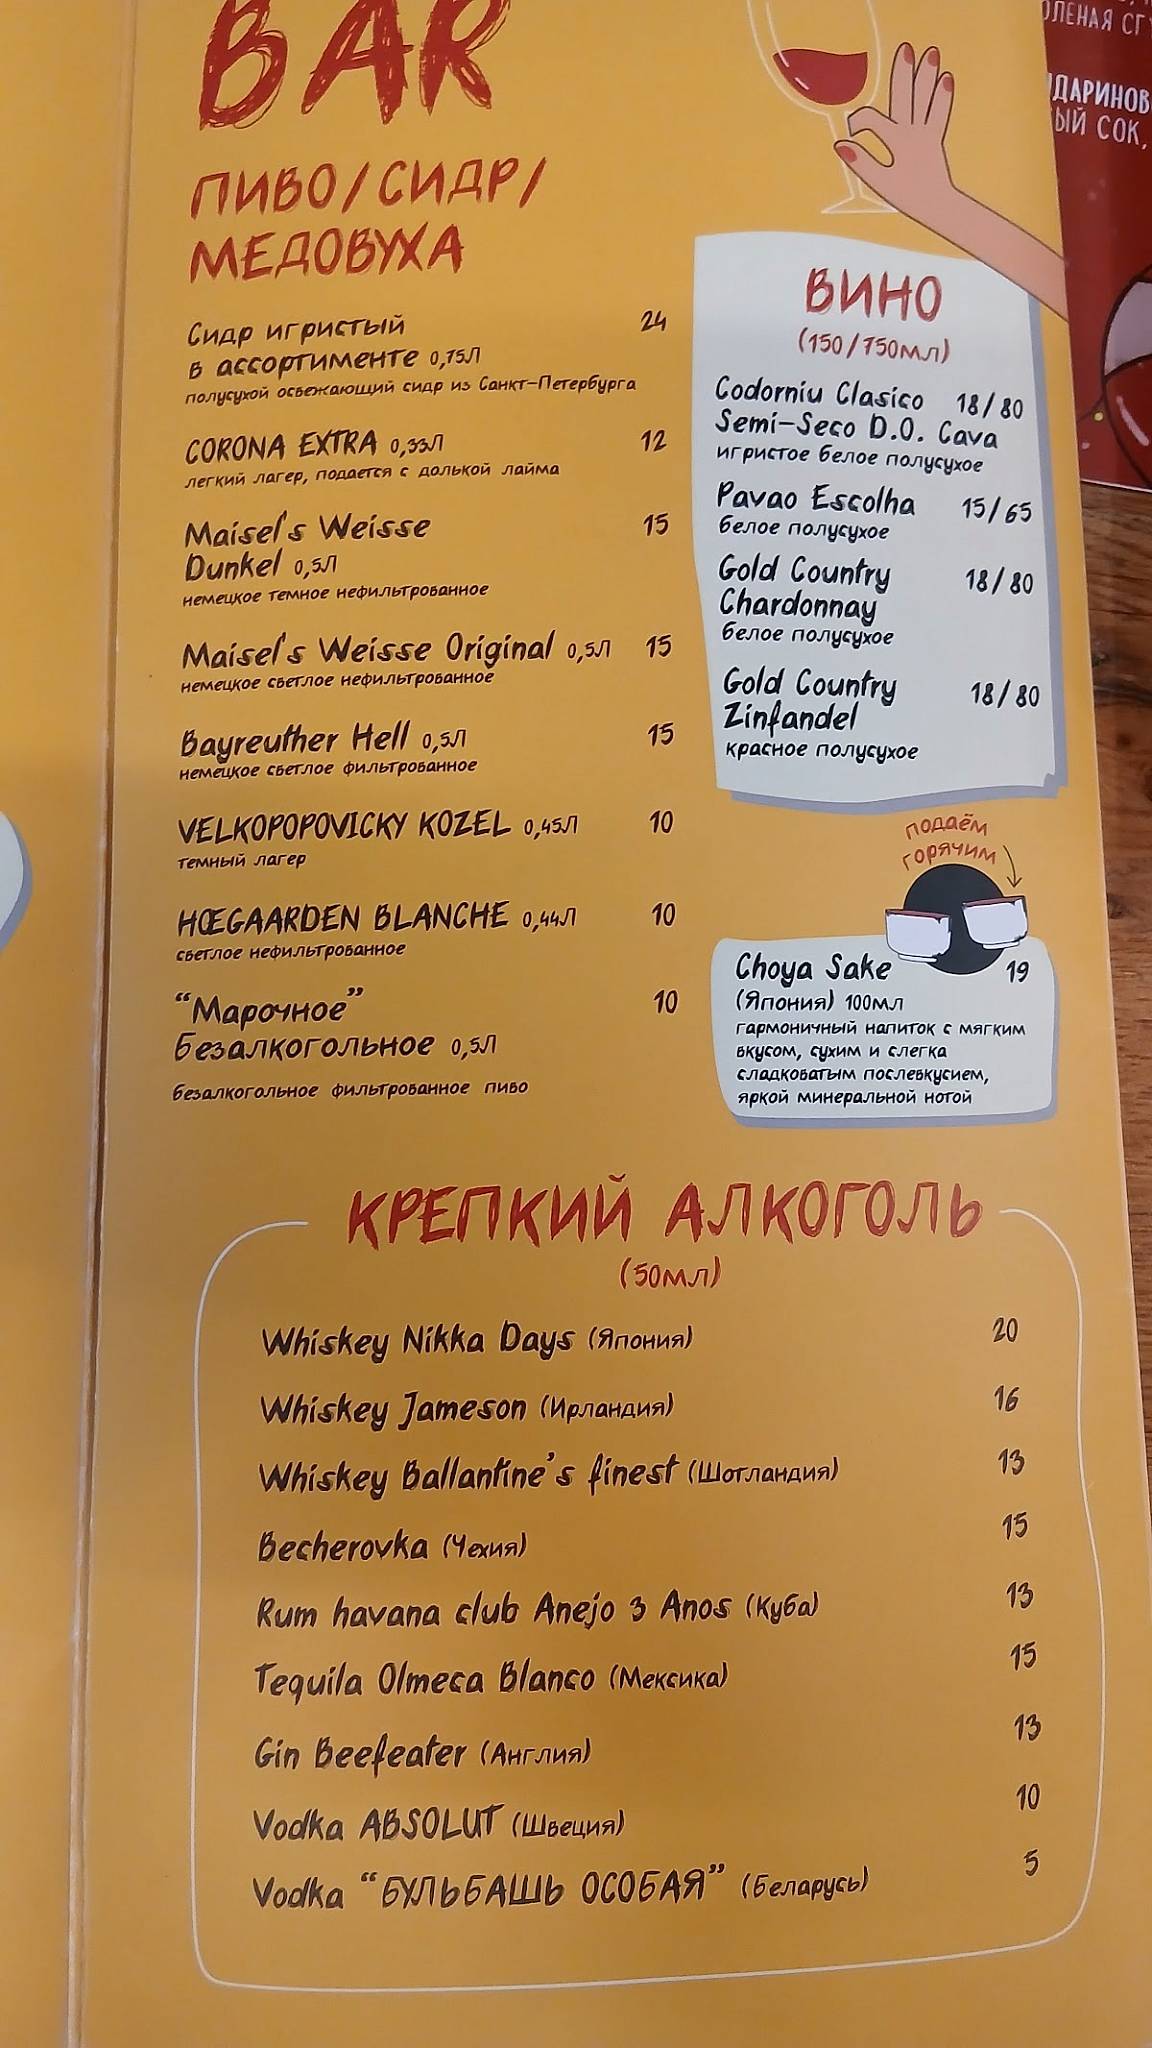 BAR
ПИВО/СИДР/
МЕДОВУХА
Сидр игристый 24
в ассортименте 0,75Л
полусухой освежающий сидр из Санкт-Петербурга
CORONA EXTRA 0,33Л 12
легкий лагер, подается с долькой лайма
Maisel's Weisse 15
Dunkel 0,5Л
немецкое темное нефильтрованное
Maisel's Weisse Original 0,5Л 15
немецкое светлое нефильтрованное
Bayreuther Hell 0,5Л 15
немецкое светлое фильтрованное
VELKOPOPOVICKY KOZEL 0,45Л 10
темный лагер
HŒGAARDEN BLANCHE 0,44Л 10
светлое нефильтрованное
“Марочное” 10
Безалкогольное 0,5Л
безалкогольное фильтрованное пиво
ВИНО
(150/750мл)
Codorniu Clasico 18/80
Semi-Seco D.O. Cava
игристое белое полусухое
Pavao Escolha 15/65
белое полусухое
Gold Country 18/80
Chardonnay
белое полусухое
Gold Country 18/80
Zinfandel
красное полусухое
подаём
горячим
Choya Sake 19
(Япония) 100мл
гармоничный напиток с мягким
вкусом, сухим и слегка
сладковатым послевкусием,
яркой минеральной нотой
КРЕПКИЙ АЛКОГОЛЬ
(50мл)
Whiskey Nikka Days (Япония) 20
Whiskey Jameson (Ирландия) 16
Whiskey Ballantine's finest (Шотландия) 13
Becherovka (Чехия) 15
Rum havana club Anejo 3 Anos (Куба) 13
Tequila Olmeca Blanco (Мексика) 15
Gin Beefeater (Англия) 13
Vodka ABSOLUT (Швеция) 10
Vodka “БУЛЬБАШЬ ОСОБАЯ” (Беларусь) 5
СОК,